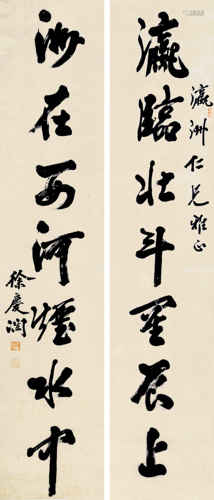 瀛洲仁兄雅正
瀛臨壯斗星辰上
洲在女河煙水中
徐慶潤